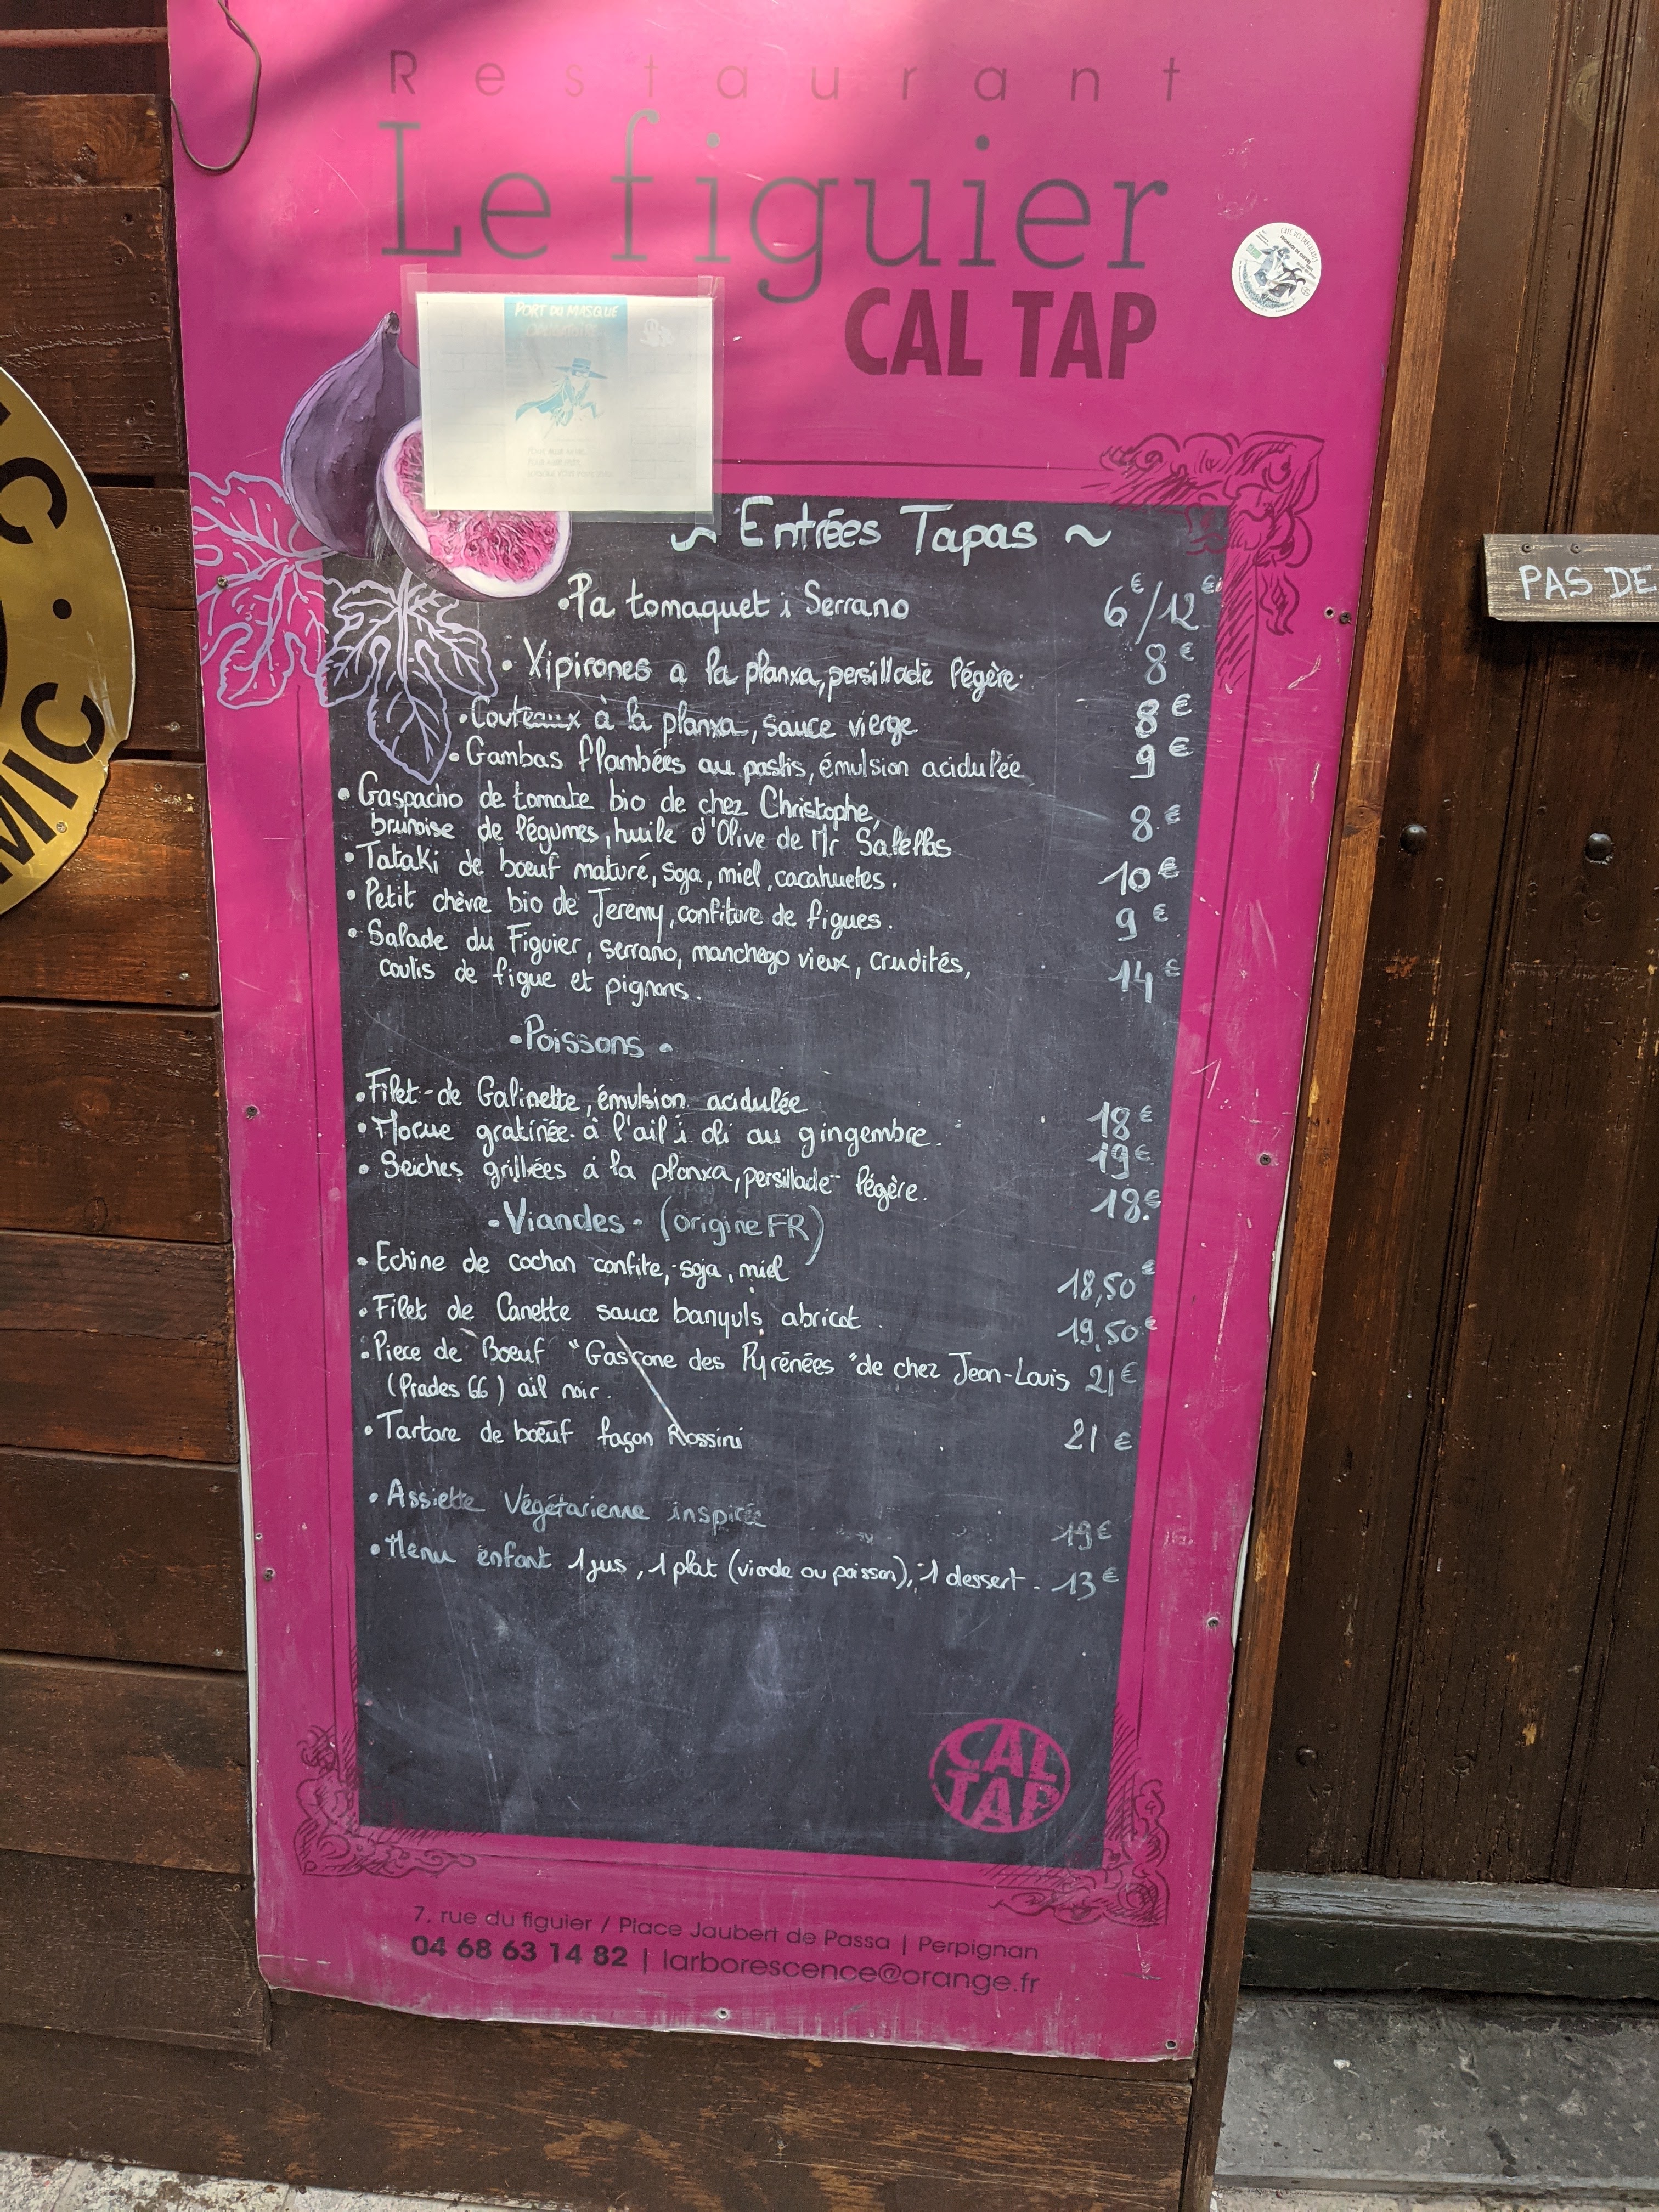 Restaurant
Le figuier
CAL TAP
PORT DU MASQUE
~ Entrées Tapas ~
• Pa tomaquet i Serrano 6€/12€
• Xipirones a la planxa, persillade légère 8€
• Couteaux à la planxa, sauce vierge 8€
• Gambas flambées au pastis, émulsion acidulée 9€
• Gaspacho de tomate bio de chez Christophe,
brunoise de légumes, huile d'Olive de Mr 8€
• Tataki de bœuf maturé, soja, miel, cacahuetes. 10€
• Petit chèvre bio de Jeremy, confiture de figues. 9€
• Salade du Figuier, serrano, manchego vieux, crudités,
coulis de figue et pignons. 14€
• Poissons •
• Filet de Galinette, émulsion acidulée 18€
• Morue gratinée à l'ail i oli au gingembre. 19€
• Seiches grillées á la planxa, persillade légère. 18€
• Viandes • (origine FR)
• Echine de cochon confite, soja, miel 18,50€
• Filet de Canette sauce banyuls abricot. 19,50€
• Piece de Boeuf "Gascone des Pyrénées" de chez Jean-Louis 21€
(Prades 66) ail noir.
• Tartare de bœuf façon Rossini 21€
• Assiette Végétarienne inspirée 19€
• Menu enfant 1 jus, 1 plat (viande ou poisson), 1 dessert. 13€
CAL
TAP
7, rue du figuier / Place Jaubert de Passa | Perpignan
04 68 63 14 82 | larborescence@orange.fr
PAS DE
MIC